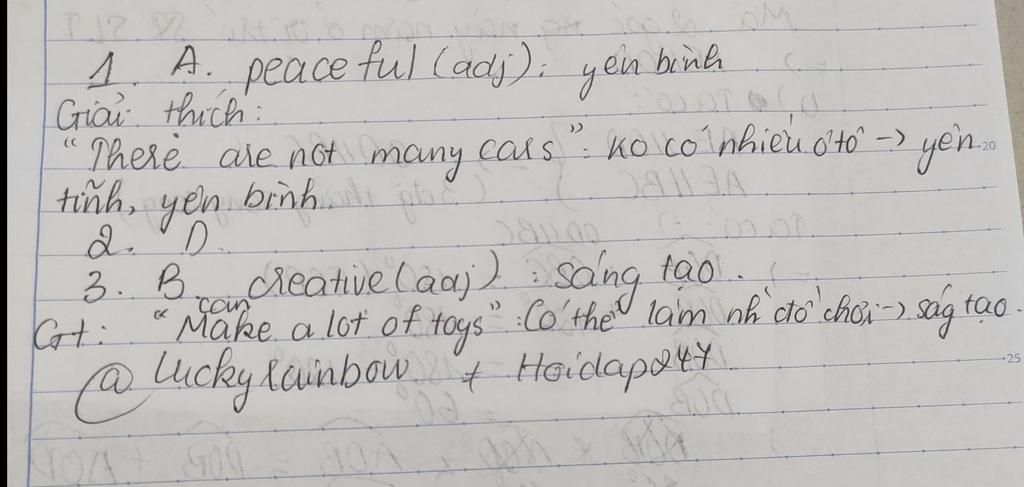 1. A. peaceful (adj): yên bình
Giải thích:
"There are not many cars": ko có nhiều ô tô -> yên
tĩnh, yên bình.
2. D.
3. B creative (adj) : sáng tạo.
Gt: "can Make a lot of toys": Có thể làm nh` đồ chơi ->ság tạo.
@ luckyrainbow + Hoidap247